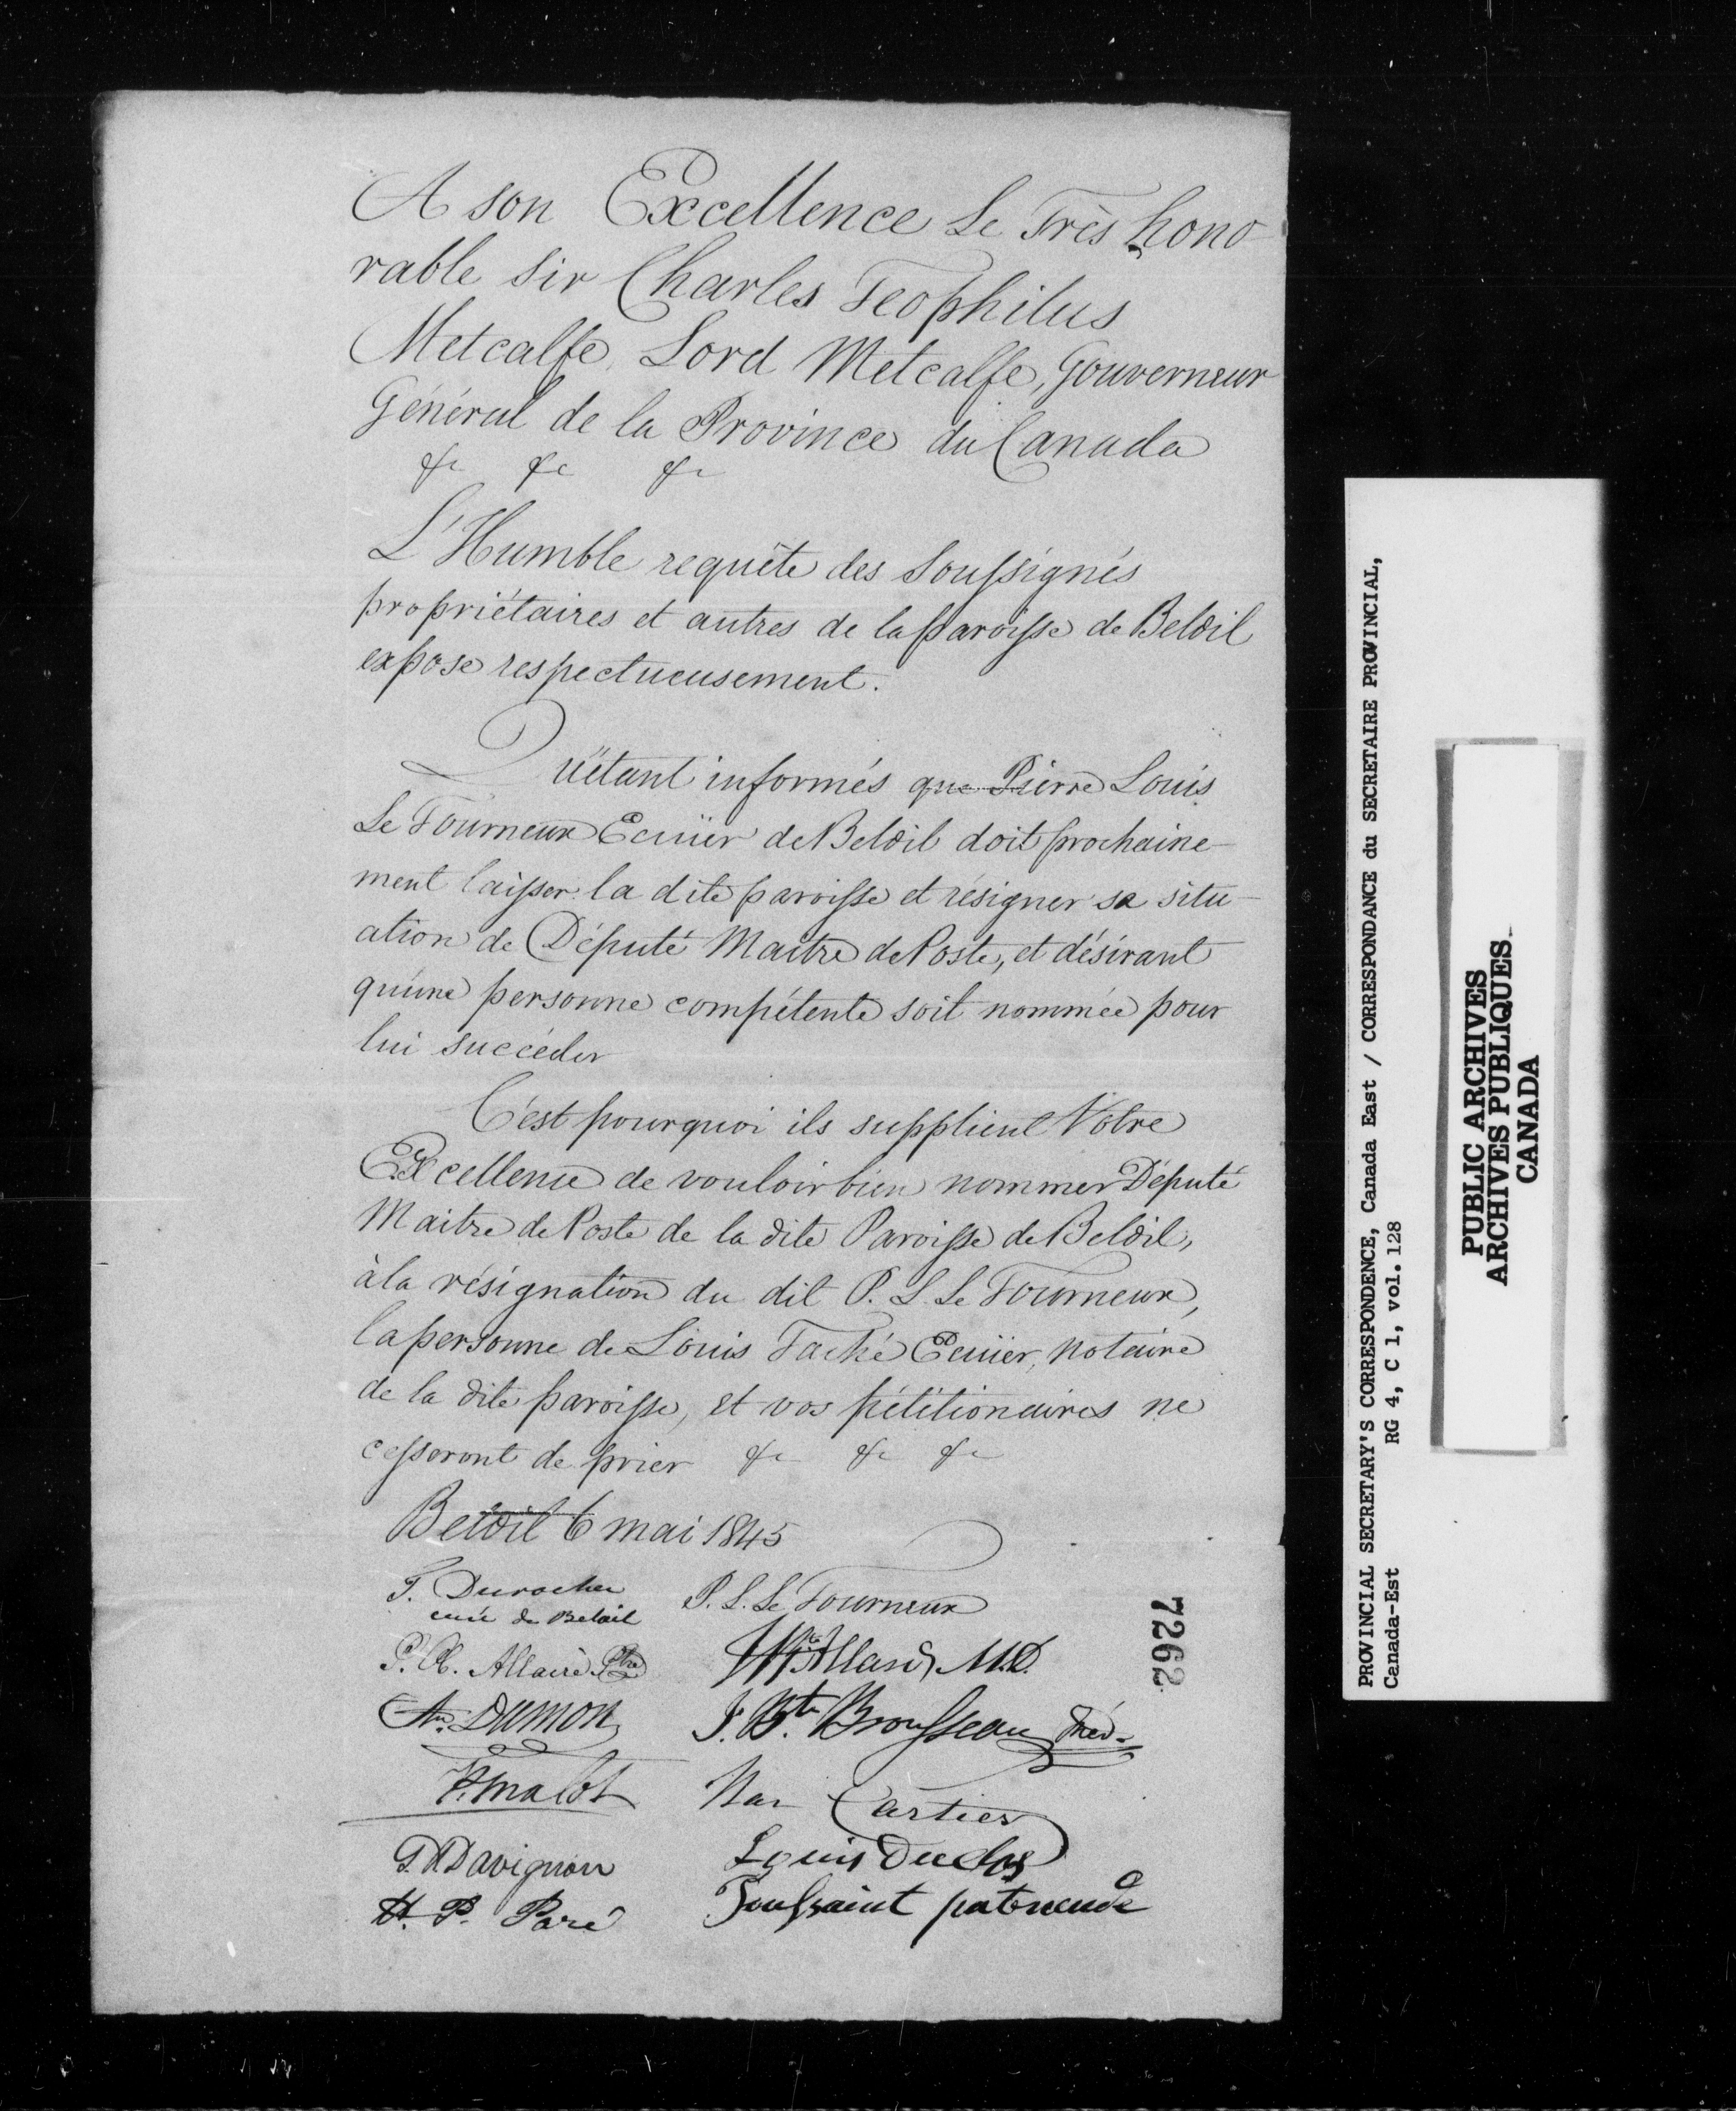 A son Excellence Le Très hono-
rable Sir Charles Teophilus
Metcalfe, Lord Metcalfe, Gouverneur
Général de la Province du Canada
&c &c &c
L'Humble requête des Soussignés
propriétaires et autres de la paroisse de Belœil
expose respectueusement.
Qu'étant informés que Pierre Louis
Le Tourneux Ecuier de Belœil doit prochaine-
ment laisser la dite paroisse et résigner sa situ-
ation de Député Maitre de Poste, et désirant
qu'une personne compétente soit nommée pour
lui succéder
C'est pourquoi ils supplient Votre
Excellence de vouloir bien nommer Député
Maitre de Poste de la dite Paroisse de Belœil,
à la résignation du dit P. L. Le Tourneux,
la personne de Louis Taché Ecuier, notaire
de la dite paroisse, et vos pétitionaires ne
cesseront de prier &c &c &c
Belœil 6 mai 1845
T. Durocher
curé de Belœil
P. L. Le Tourneux
Allaire Ptre
Allard, M.D.
Dumon
J. Bte. Brousseau
Malot
Nar Cartier
Davignon
Louis Duclos
H. P. Paré
Toussaint patenaude
7262
PROVINCIAL SECRETARY'S CORRESPONDENCE, Canada East / CORRESPONDANCE du SECRETAIRE PROVINCIAL,
Canada-Est RG 4, C 1, vol. 128
PUBLIC ARCHIVES
ARCHIVES PUBLIQUES
CANADA